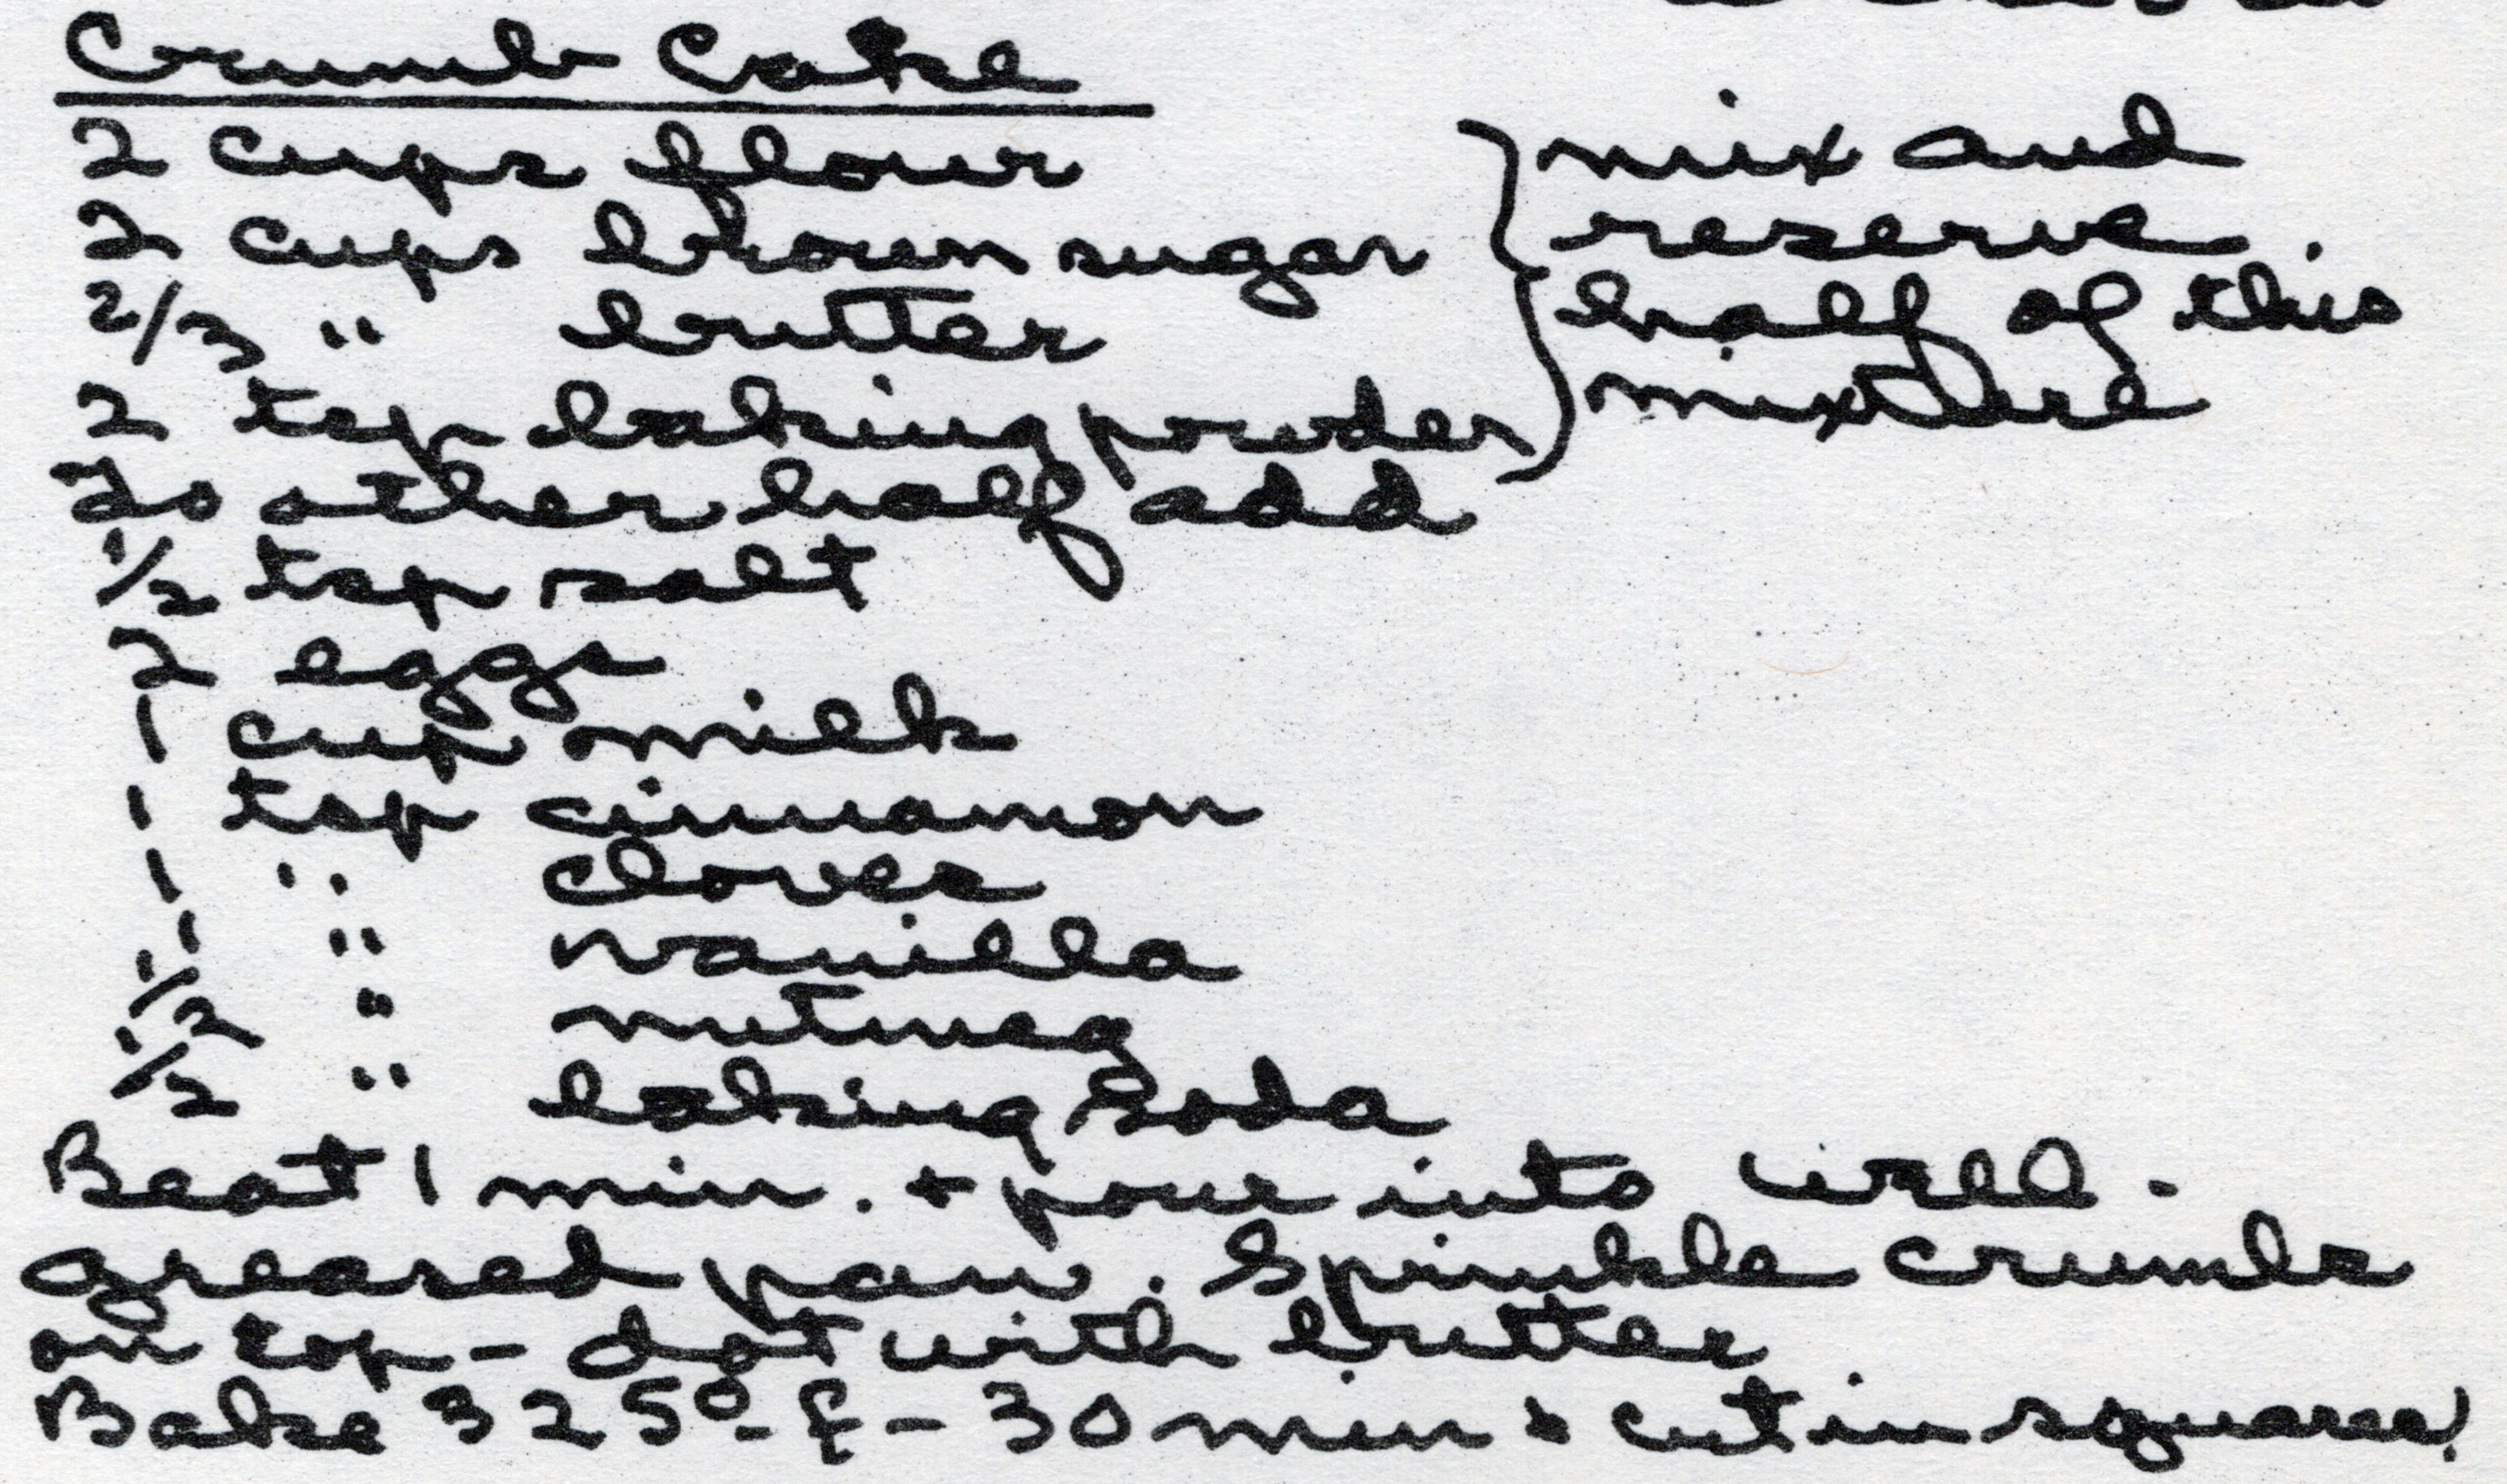 Crumb Cake
2 cups flour
2 cups brown sugar
2/3 " butter
2 tsp baking powder
} mix and
reserve
half of this
mixture
To other half add
1/2 tsp salt
2 eggs
1 cup milk
1 tsp cinnamon
1 " cloves
1 " vanilla
1/2 " nutmeg
1/2 " baking soda
Beat 1 min. + pour into well-
greased pan. Sprinkle crumbs
on top - dot with butter
Bake 325° - f - 30 min + cut in squares!